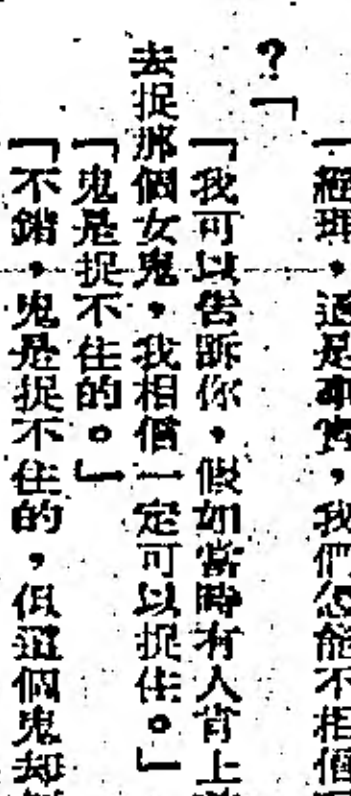 「經理，這是事實，我們怎能不相信
？」
「我可以告訴你，假如當時有人肯上
去捉那個女鬼，我相信一定可以捉住。」
「鬼是捉不住的。」
「不錯，鬼是捉不住的，但這個鬼却